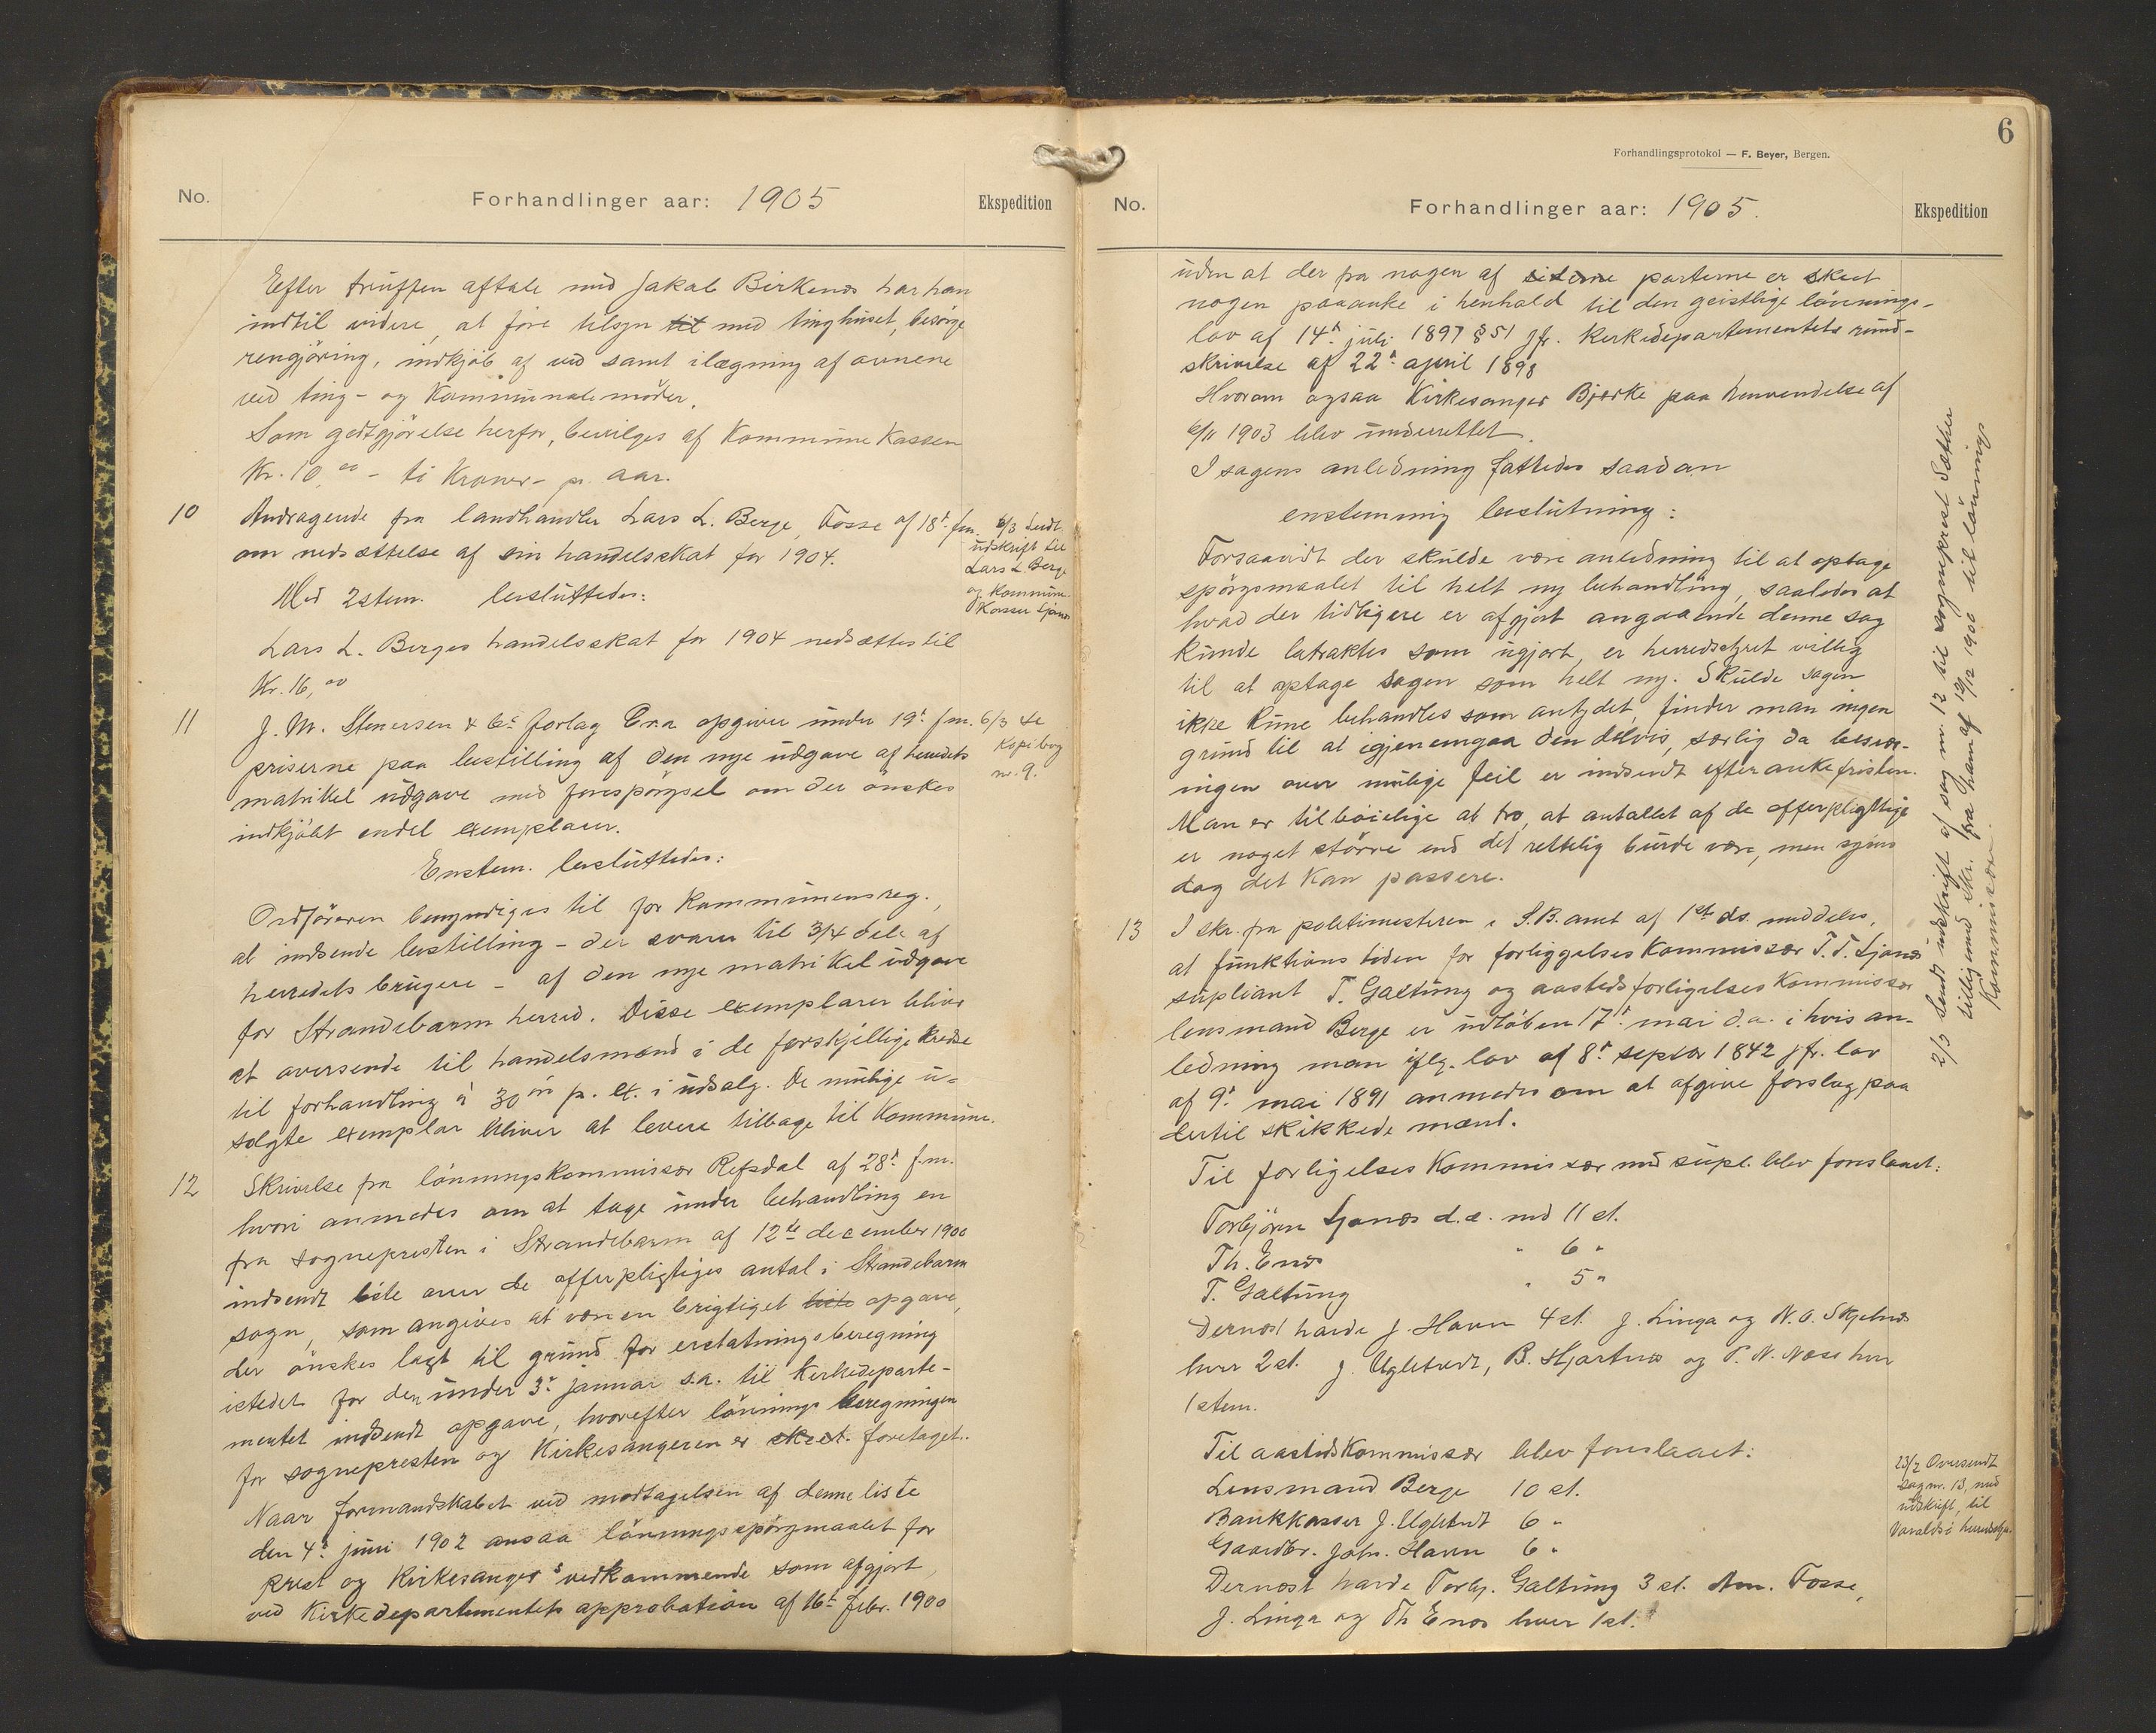 No.
Forhandlinger aar: 1905
Ekspedition
Efter truffen aftale med Jakob Birkenes har han
indtil videre, at före tilsyn til med tinghuset, besörge
rengjöring, indkjöb af ved samt ilægning af ovnene
ved ting- og Kommunalemöder.
Som godtgjörelse herfor, bevilges af Kommune Kassen
Kr. 10,00 - ti Kroner - pr. aar.
10 Andragende fra landhandler Lars L. Berge, Fosse af 18de f.m.
om nedsættelse af sin handelsskat for 1904.
Med 2 stem. besluttedes:
Lars L. Berges handelsskat for 1904 nedsættes til
Kr. 16,00
6/3 Sendt
udskrift til
Lars L. Berge
og Kommune
Kasser Ljones
11 J. M. Stenersen & Co forlag Kra opgiver under 19de f.m.
priserne paa bestilling af den nye udgave af herredets
matrikel udgave med forespörgsel om der önskes
indkjöbt endel exemplarer.
Enstem. besluttedes:
6/3 se
Kopibog
nr. 9.
Ordföreren bemyndiges til for Kommunens reg.,
at indsende bestilling - der svarer til 3/4 dele af
herredets brugere - af den nye matrikel udgave
for Strandebarm herred. Disse exemplarer bliver
at oversende til handelsmænd i de forskjellige Kredse
til forhandling à 30 öre pr. ex. i udsalg. De mulige u-
solgte exemplar bliver at levere tilbage til Kommune.
12 Skrivelse fra lönningskommissær Refsdal af 28de f.m.
hvori anmodes om at tage under behandling en
fra sognepresten i Strandebarm af 12te december 1900
indsendt liste over de offerpligtiges antal i Strandebarm
sogn, som angives at være en brigtiget liste opgave,
der önskes lagt til grund for erstatningsberegning
istedet for den under 3de januar s.a. til Kirkedeparte-
mentet indsendt opgave, hvorefter lönnings beregningen
for sognepresten og Kirkesangeren er skeet foretaget.
Naar formandskabet ved modtagelsen af denne liste
den 4de juni 1902 ansaa lönningsspörgmaalet for
prest og Kirkesanger's vedkommende som afgjort,
ved Kirkedepartementets approbation af 16de febr. 1900
6
Forhandlingsprotokol — F. Beyer, Bergen.
No.
Forhandlinger aar: 1905.
Ekspedition
uden at der fra nogen af siderne parterne er skeet
nogen paaanke i henhold til den geistlige lönnings-
lov af 14de juli 1897 § 51 jfr. Kirkedepartementets rund-
skrivelse af 22de april 1898
Hvorom ogsaa Kirkesanger Bjerke paa henvendelse af
6/11 1903 blev underrettet.
I sagens anledning fattedes saadan
enstemmig beslutning:
Forsaavidt der skulde være anledning til at optage
spörgsmaalet til helt ny behandling, saaledes at
hvad der tidligere er afgjort angaaende denne sag
kunde betraktes som ugjort, er herredstyret villig
til at optage sagen som helt ny. Skulde sagen
ikke kune behandles som antydet, finder man ingen
grund til at igjenemgaa den delvis, særlig da besvær-
ingen over mulige feil er indsendt efter ankefristen.
Man er tilböielige at tro, at antallet af de offerpligtige
er noget större end det rettelig burde være, men synes
dog det kan passere.
2/3 Sendt udskrift af sag nr. 12 til sogneprest Sæther
tilligemed skr. fra ham af 12/12 1900 til lönnings
Kommissær.
13 I skr. fra politimesteren i S.B. amt af 1ste ds. meddeles,
at funktionstiden for forliggelses Kommissær T. T. Ljones
supliant T. Galtung og aasteds forligelses Kommissær
lensmand Berge er udlöben 17de mai d.a. i hvis an-
ledning man iflg. lov af 8de septbr 1842 jfr. lov
af 9de mai 1891 anmodes om at afgive forslag paa
dertil skikkede mænd.
Til forligelses Kommissær med supl. blev foreslaaet:
Torbjörn Ljones d.æ. med 11 st.
Th. Enes " 6 "
T. Galtung " 5 "
Dernæst havde J. Havn 4 st. J. Linga og N. O. Skjelnes
hver 2 st. J. Ugletvedt, B. Hjartnes og P. N. Næss hver
1 stem.
Til aasteds Kommissær blev foreslaaet:
Lensmand Berge 10 st.
Bankkasser J. Ugletvedt 6 "
Gaardbr. Johs. Havn 6 "
Dernæst havde Torbj. Galtung 3 st. Am. Fosse,
J. Linga og Th Enes hver 1 st.
23/2 Oversendt
sag nr. 13, med
udskrift, til
Varaldsö herredstyre.